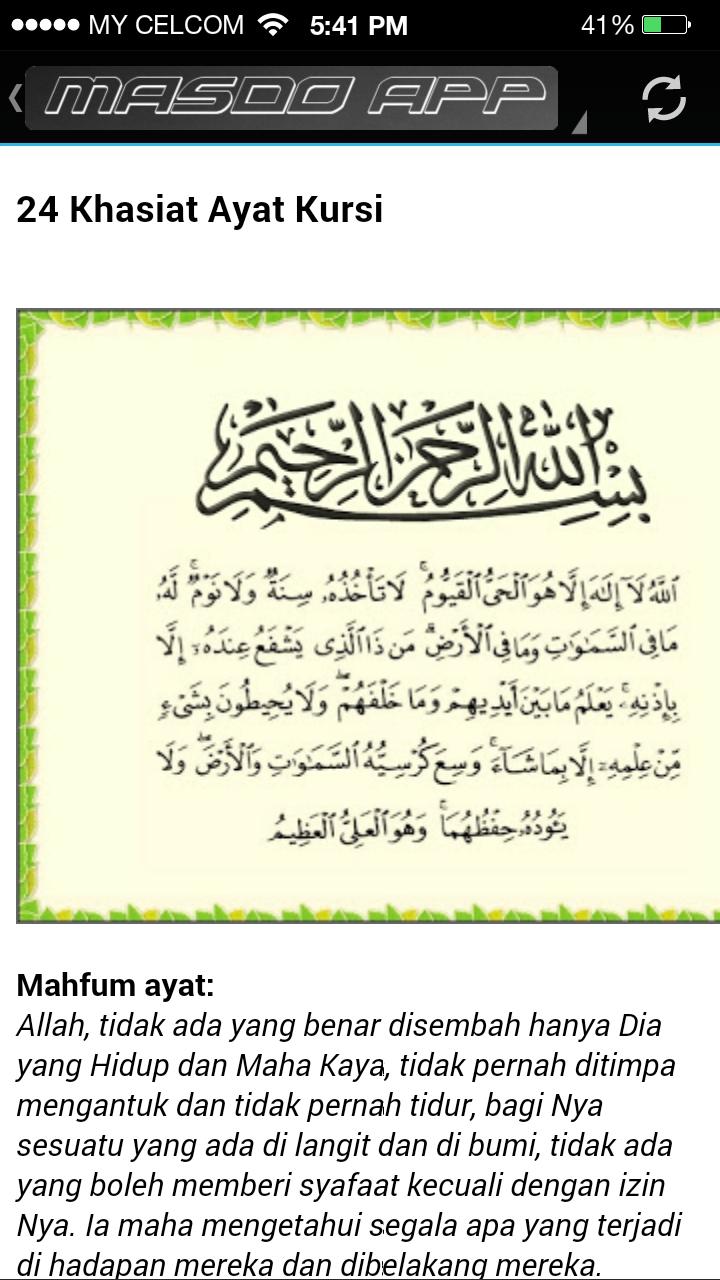 MY CELCOM 5:41 PM 41%
MASDO APP
24 Khasiat Ayat Kursi
بِسْمِ اللَّهِ الرَّحْمَٰنِ الرَّحِيمِ
ٱللَّهُ لَآ إِلَٰهَ إِلَّا هُوَ ٱلْحَىُّ ٱلْقَيُّومُ ۚ لَا تَأْخُذُهُۥ سِنَةٌ وَلَا نَوْمٌ ۚ لَّهُۥ
مَا فِى ٱلسَّمَٰوَٰتِ وَمَا فِى ٱلْأَرْضِ ۗ مَن ذَا ٱلَّذِى يَشْفَعُ عِندَهُۥٓ إِلَّا
بِإِذْنِهِۦ ۚ يَعْلَمُ مَا بَيْنَ أَيْدِيهِمْ وَمَا خَلْفَهُمْ ۖ وَلَا يُحِيطُونَ بِشَىْءٍ
مِّنْ عِلْمِهِۦٓ إِلَّا بِمَا شَآءَ ۚ وَسِعَ كُرْسِيُّهُ ٱلسَّمَٰوَٰتِ وَٱلْأَرْضَ ۖ وَلَا
يَـُٔودُهُۥ حِفْظُهُمَا ۚ وَهُوَ ٱلْعَلِىُّ ٱلْعَظِيمُ
Mahfum ayat:
Allah, tidak ada yang benar disembah hanya Dia
yang Hidup dan Maha Kaya, tidak pernah ditimpa
mengantuk dan tidak pernah tidur, bagi Nya
sesuatu yang ada di langit dan di bumi, tidak ada
yang boleh memberi syafaat kecuali dengan izin
Nya. Ia maha mengetahui segala apa yang terjadi
di hadapan mereka dan dibelakang mereka.